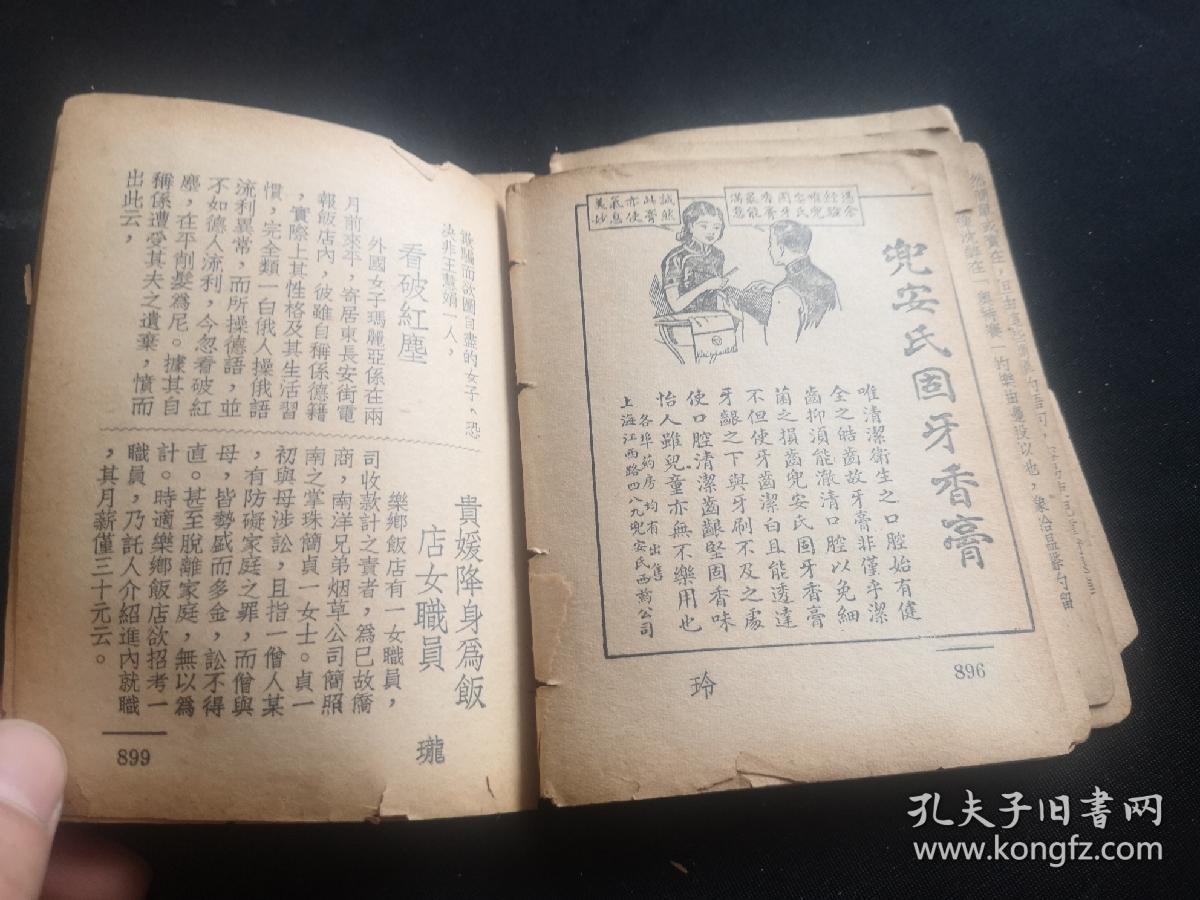 兜安氏固牙香膏
湯余
經驗
唯兜
安氏
固牙
香膏
最能
滿意
誠然
此膏
亦使
氣息
美妙
唯清潔衛生之口腔始有健
全之皓齒故牙膏非僅乎潔
齒抑須能澈清口腔以免細
菌之損齒兜安氏固牙香膏
不但使牙齒潔白且能透達
牙齦之下與牙刷不及之處
使口腔清潔齒齦堅固香味
怡人雖兒童亦無不樂用也
各埠药房均有出售
上海江西路四八九兜安氏西药公司
896
玲
欺騙而欲圖自盡的女子，恐
決非王慧娟一人，
看破紅塵
外國女子瑪麗亞係在兩
月前來平，寄居東長安街電
報飯店內，彼雖自稱係德籍
，實際上其性格及其生活習
慣，完全類一白俄人操俄語
流利異常，而所操德語，並
不如德人流利，今忽看破紅
塵，在平削髮爲尼。據其自
稱係遭受其夫之遺棄，憤而
出此云，
貴媛降身爲飯
店女職員
樂鄉飯店有一女職員，
司收款計之責者，爲已故僑
商，南洋兄弟烟草公司簡照
南之掌珠簡貞一女士。貞一
初與母涉訟，且指一僧人某
，有防礙家庭之罪，而僧與
母，皆勢盛而多金，訟不得
直。甚至脫離家庭，無以爲
計。時適樂鄉飯店欲招考一
職員，乃託人介紹進內就職
，其月薪僅三十元云。
瓏
899
孔夫子旧書网
www.kongfz.com